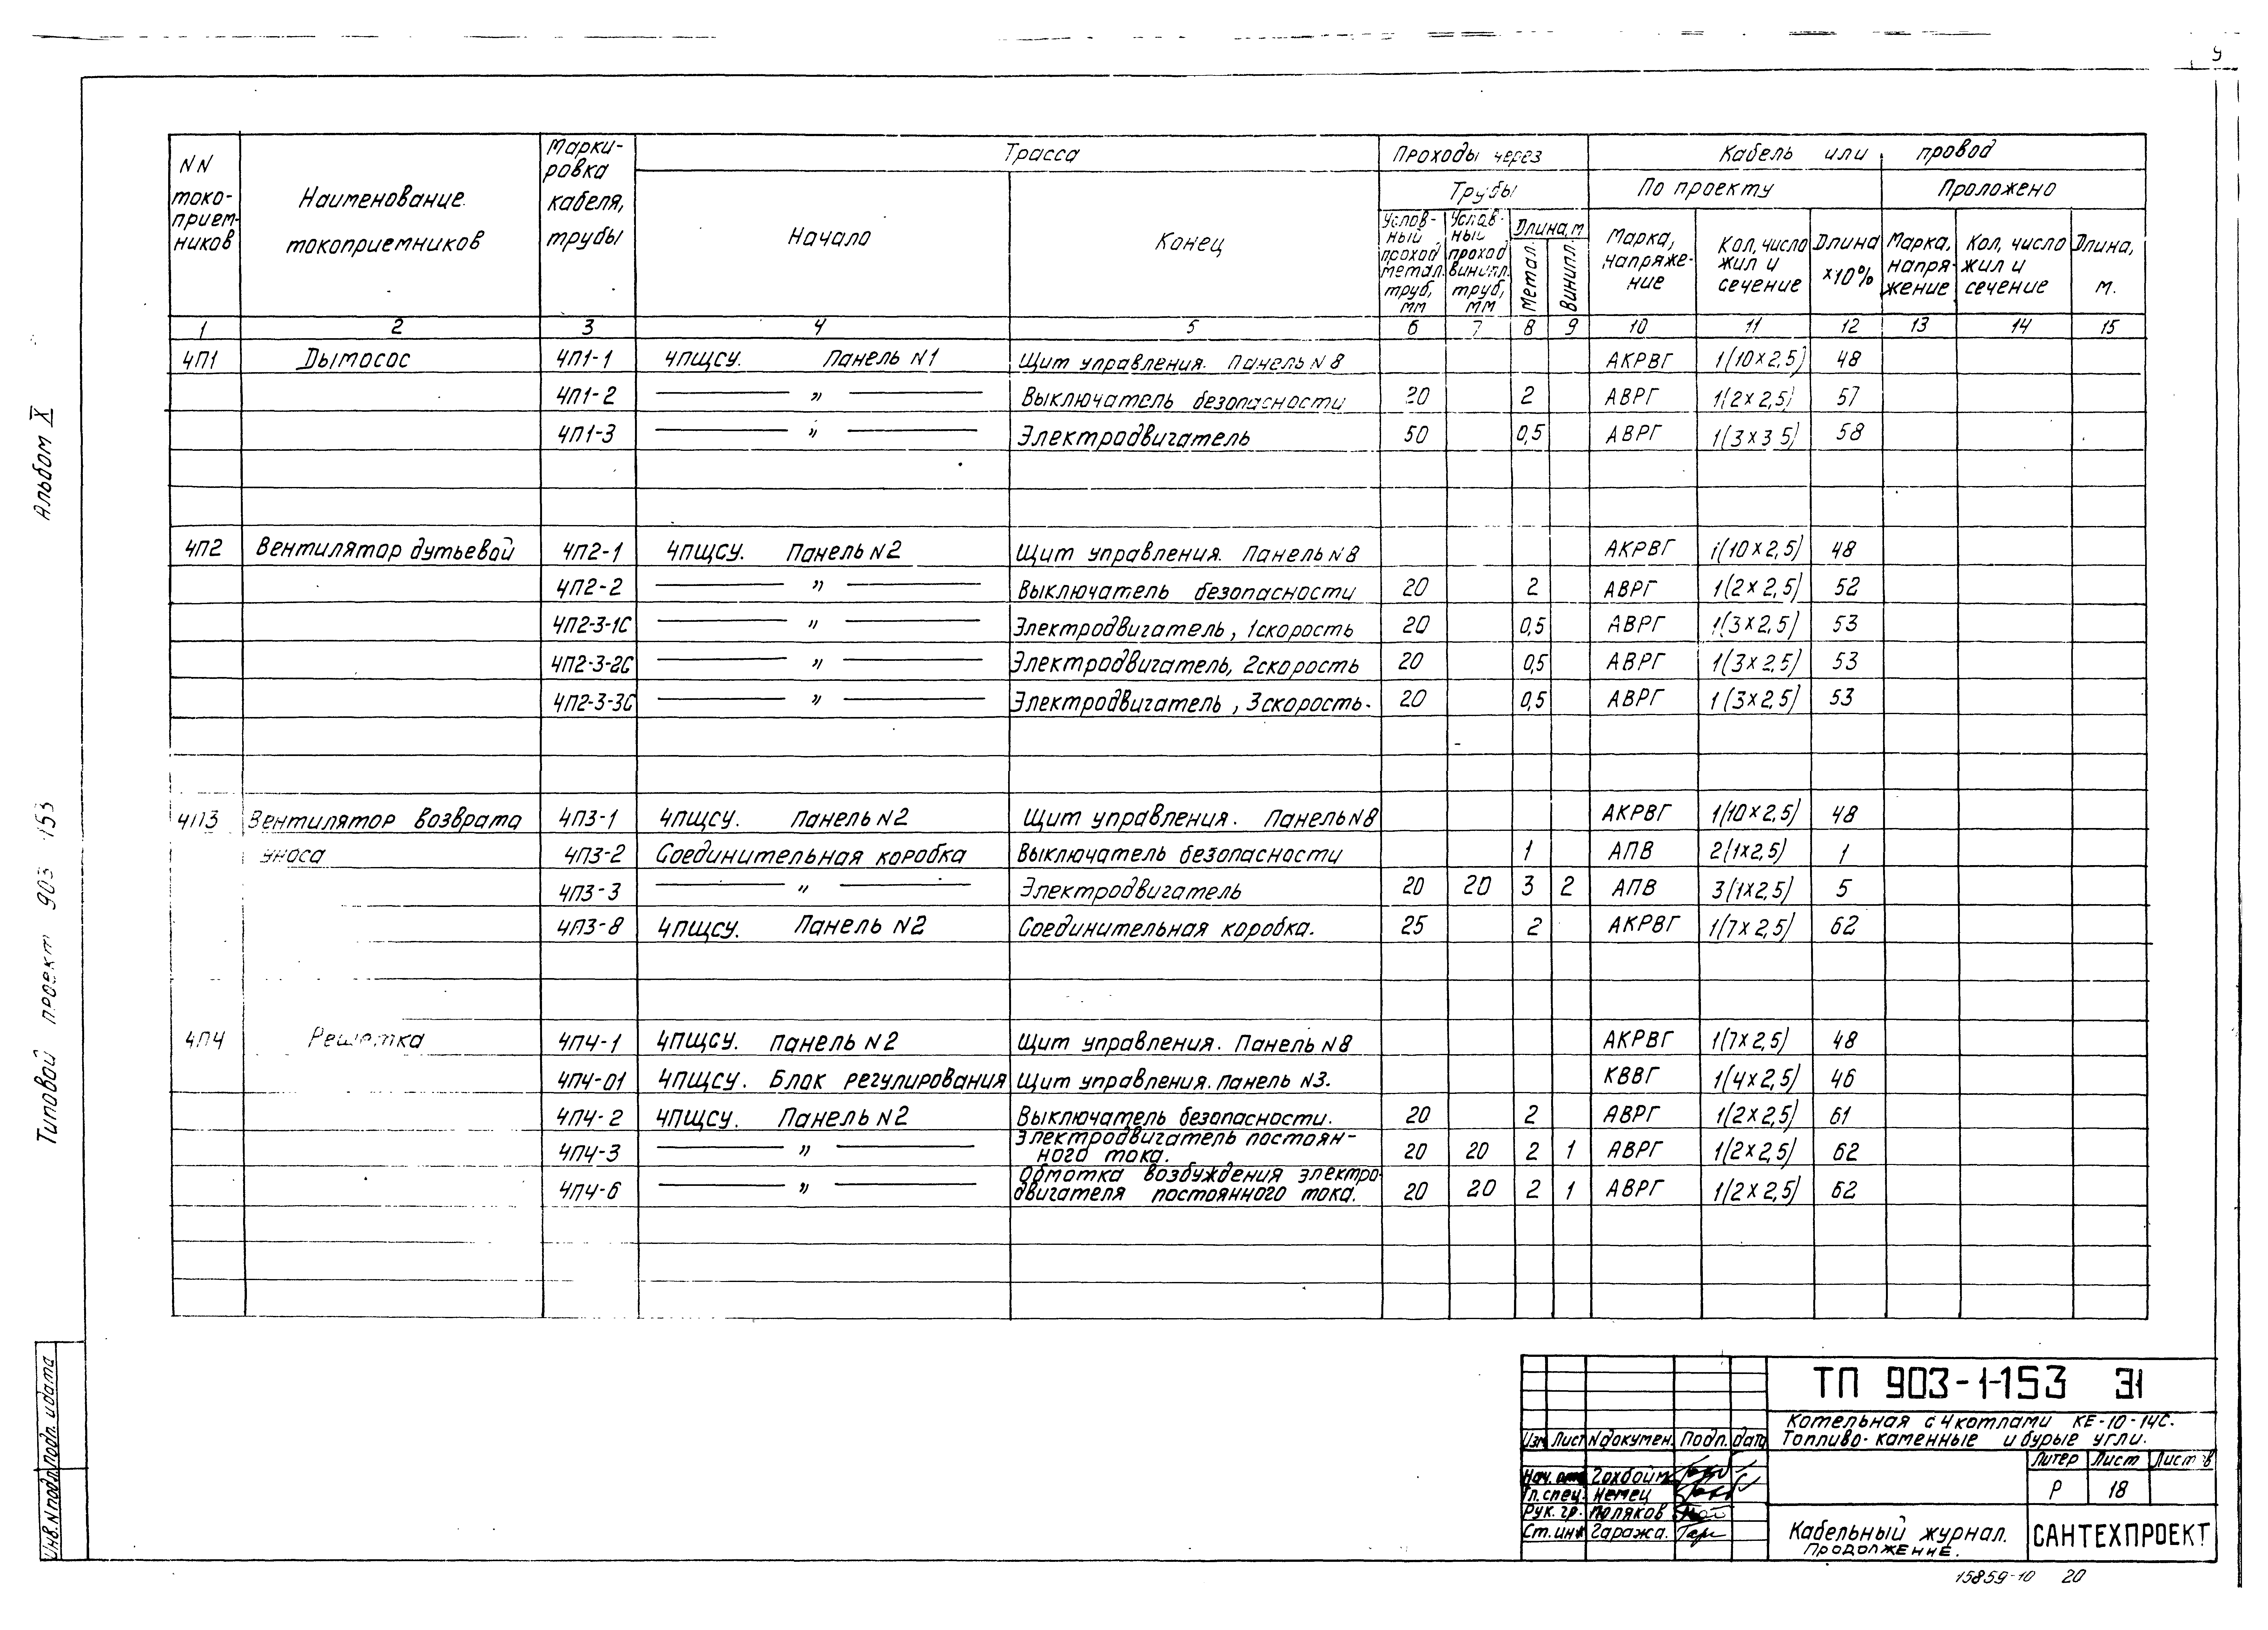 NN токо-приемников | Наименование токоприемников | Маркировка кабеля, трубы | Трасса | Проходы через трубы | Кабель или провод
Начало | Конец | Условный проход метал. труб, мм | Условный проход винипл. труб, мм | Длина, м | По проекту | Проложено
Метал. | Винипл. | Марка, напряжение | Кол, число жил и сечение | Длина ×10% | Марка, напряжение | Кол, число жил и сечение | Длина, м.
1 2 3 4 5 6 7 8 9 10 11 12 13 14 15
4П1 Дымосос 4П1-1 4ПЩСУ. Панель N1 Щит управления. Панель N8 АКРВГ 1(10×2,5) 48
4П1-2 —— „ —— Выключатель безопасности 20 2 АВРГ 1(2×2,5) 57
4П1-3 —— „ —— Электродвигатель 50 0,5 АВРГ 1(3×35) 58
4П2 Вентилятор дутьевой 4П2-1 4ПЩСУ. Панель N2 Щит управления. Панель N8 АКРВГ 1(10×2,5) 48
4П2-2 —— „ —— Выключатель безопасности 20 2 АВРГ 1(2×2,5) 52
4П2-3-1С —— „ —— Электродвигатель, 1скорость 20 0,5 АВРГ 1(3×2,5) 53
4П2-3-2С —— „ —— Электродвигатель, 2скорость 20 0,5 АВРГ 1(3×2,5) 53
4П2-3-3С —— „ —— Электродвигатель, 3скорость. 20 0,5 АВРГ 1(3×2,5) 53
4П3 Вентилятор возврата 4П3-1 4ПЩСУ. Панель N2 Щит управления. Панель N8 АКРВГ 1(10×2,5) 48
уноса 4П3-2 Соединительная коробка Выключатель безопасности 1 АПВ 2(1×2,5) 1
4П3-3 —— „ —— Электродвигатель 20 20 3 2 АПВ 3(1×2,5) 5
4П3-8 4ПЩСУ. Панель N2 Соединительная коробка. 25 2 АКРВГ 1(7×2,5) 62
4П4 Решотка 4П4-1 4ПЩСУ. Панель N2 Щит управления. Панель N8 АКРВГ 1(7×2,5) 48
4П4-01 4ПЩСУ. Блок регулирования Щит управления. Панель N3. КВВГ 1(4×2,5) 46
4П4-2 4ПЩСУ. Панель N2 Выключатель безопасности. 20 2 АВРГ 1(2×2,5) 61
4П4-3 —— „ —— Электродвигатель постоянного тока. 20 20 2 1 АВРГ 1(2×2,5) 62
4П4-6 —— „ —— Обмотка возбуждения электродвигателя постоянного тока. 20 20 2 1 АВРГ 1(2×2,5) 62
Альбом X
Типовой проект 903 153
Инв. N подл. Подп. и дата
ТП 903-1-153 Э1
Котельная с 4 котлами КЕ-10-14С.
Топливо-каменные и бурые угли.
Изм Лист N докумен. Подп. дата
Нач. отд
Гл. спец. Немец
Рук. гр. Поляков
Ст. инж Гаража.
Литер Лист Листов
Р 18
Кабельный журнал.
Продолжение.
САНТЕХПРОЕКТ
15859-10 20